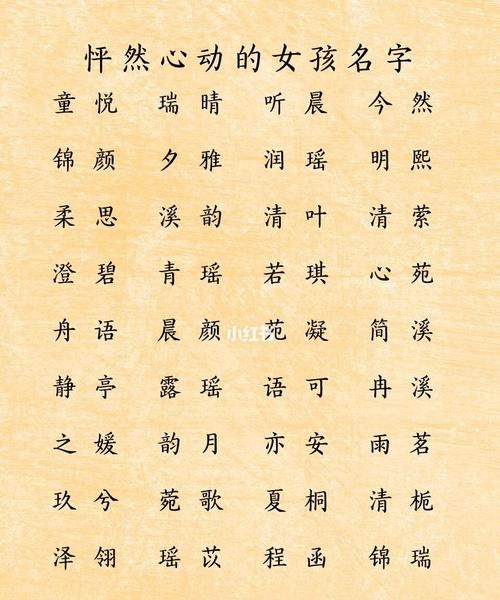 怦然心动的女孩名字
童悦 瑞晴 听晨 今然
锦颜 夕雅 润瑶 明熙
柔思 溪韵 清叶 清萦
澄碧 青瑶 若琪 心苑
舟语 晨颜 苑凝 简溪
小红书
静亭 露瑶 语可 冉溪
之媛 韵月 亦安 雨茗
玖兮 菀歌 夏桐 清栀
泽翎 瑶苡 程函 锦瑞